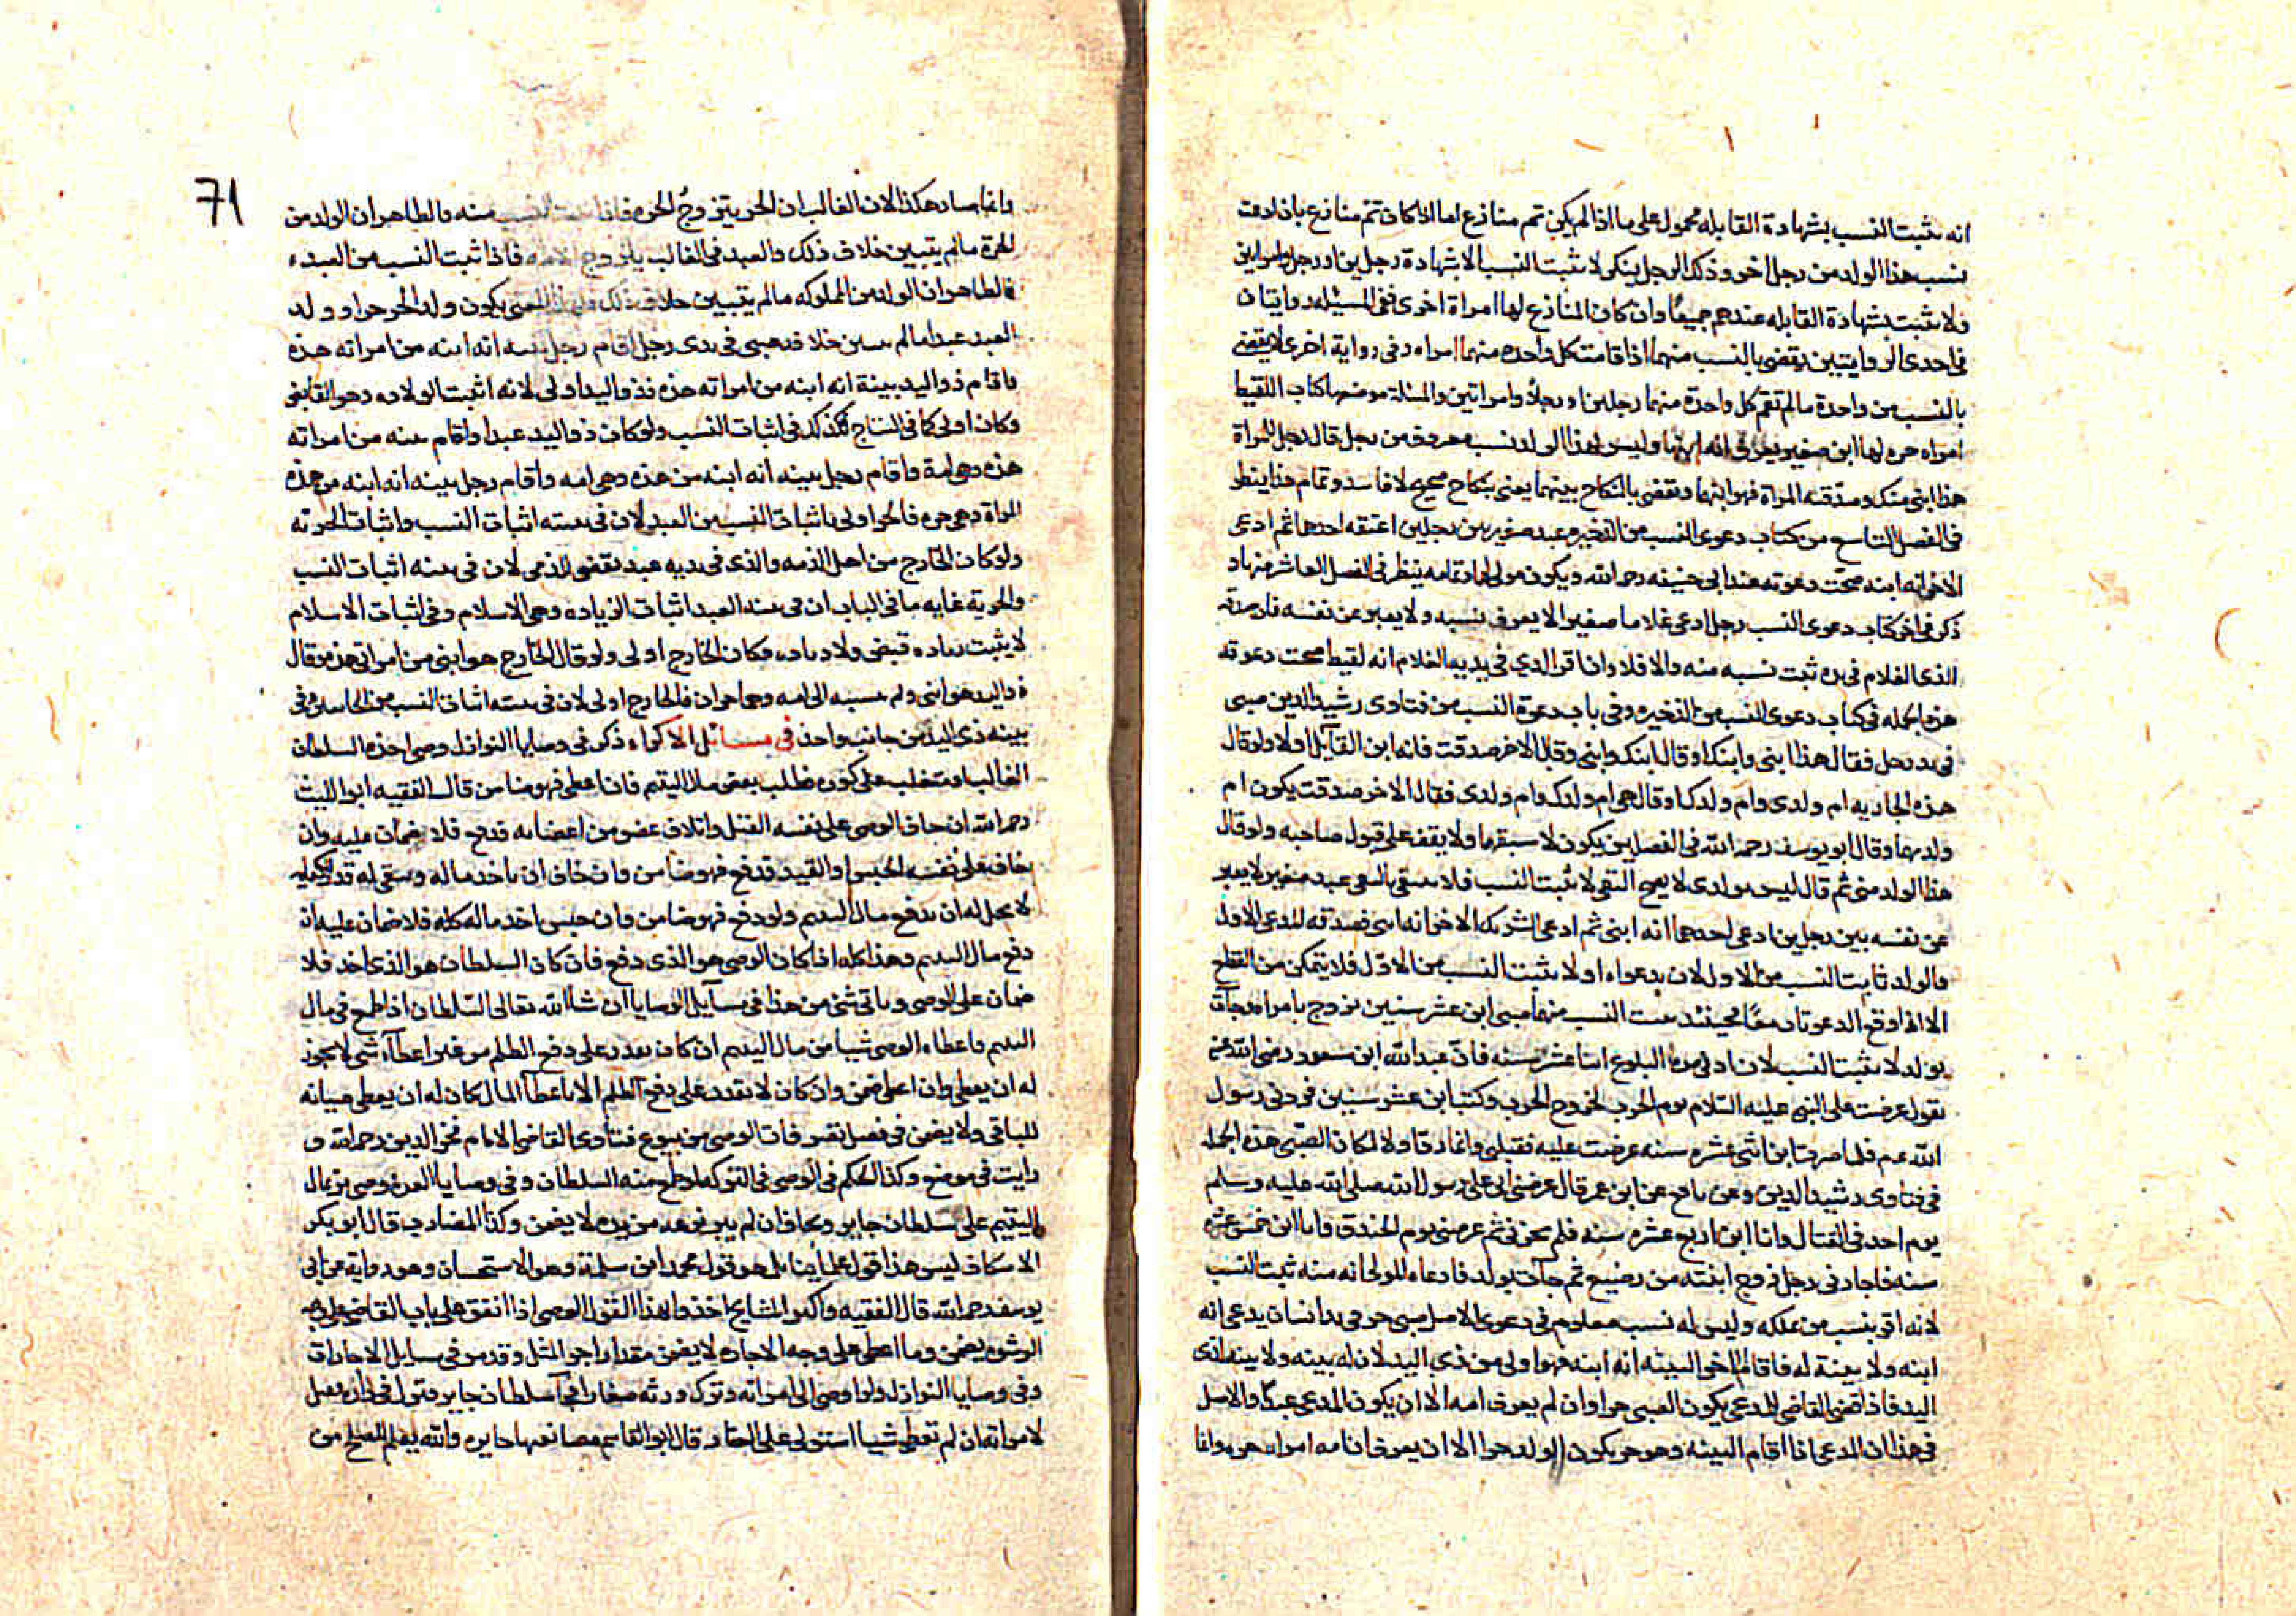 انه يثبت النسب بشهادة القابله محمول على ما اذا لم يكن ثم منازع اما اذا كان ثم منازع بان ادعت
نسب هذا الولد من رجل اخر وذلك الرجل ينكر لا يثبت النسب الا بشهادة رجلين او رجل وامراتين
ولا يثبت بشهادة القابله عندهم جميعا وان كان المنازع لها امراة اخرى ففى المسئله روايتان
فى احدى الروايتين يقضى بالنسب منهما اذا قامت كل واحده منهما امراه وفى رواية اخرى لا يقضى
بالنسب من واحدة ما لم تقم كل واحدة منهما رجلين او رجلا وامراتين والمسئلة موضعها كتاب اللقيط
امراه حره لها ابن صغير يعرف انه ابنها وليس لهذا الولد نسب معروف من رجل قال رجل للمراة
هذا ابنى منك وصدقته المراة فهو ابنهما ويقضى بالنكاح بينهما يعنى بنكاح صحيح لا فاسد وتمام هذا ينظر
فى الفصل التاسع من كتاب دعوى النسب من الذخيره عبد صغير بين رجلين اعتقه احدهما ثم ادعى
الاخر انه ابنه صحت دعوته عند ابى حنيفه رحمه الله ويكون مولى لهما وتمامه ينظر فى الفصل العاشر منها و
ذكر فى اخر كتاب دعوى النسب رجل ادعى غلاما صغيرا لا يعرف نسبه ولا يعبر عن نفسه فان صدقه
الذى الغلام فى يده ثبت نسبه منه والا فلا وان اقر الذي فى يديه الغلام انه لقيط صحت دعوته
هذه الجمله فى كتاب دعوى النسب من الذخيره وفى باب دعوة النسب من فتاوى رشيد الدين صبى
فى يد رجل فقال هذا ابنى وابنك او قال ابنك وابنى وقال الاخر صدقت فانه ابن القآيل اولا ولو قال
هذه الجاريه ام ولدى وام ولدك او قال هى ام ولدك وام ولدى فقال الاخر صدقت يكون ام
ولدهما وقال ابو يوسف رحمه الله فى الفصلين يكون لاسبقهما ولا يقف على قبول صاحبه ولو قال
هذا الولد منى ثم قال ليس بولدى لا يصح النفى لا نه ثبت النسب فلا ينتفى بالنفى عبد صغير لا يعبر
عن نفسه بين رجلين ادعى احدهما انه ابنى ثم ادعى الشريك الاخر انه ابنى فصدقه المدعى الاول
فالولد ثابت النسب من الاول لان بدعواه اولا يثبت النسب من الاول فلا يتمكن من القطع
الا اذا وقع الدعوتان معا فحينئذ يثبت النسب منهما صبى ابن عشر سنين تزوج بامراة فجآت
بولد لا يثبت النسب لان ادنى مدة البلوغ اثنا عشر سنه فان عبد الله ابن مسعود رضى الله عنه
يقول عرضت على النبى عليه السلام يوم الحرب لخروج الحرب وكنت ابن عشر سنين فردنى رسول
الله عم فلما صرت ابن اثنى عشره سنه عرضت عليه فقبلنى وانما رده اولا لمكان الصبى هذه الجمله
فى فتاوى رشيد الدين وعن نافع عن ابن عمر قال عرضنى ابى على رسول الله صلى الله عليه وسلم
يوم احد فى القتال وانا ابن اربع عشره سنه فلم يجزنى ثم عرضنى يوم الخندق وانا ابن خمس عشره
سنه فاجازنى رجل زوج ابنته من رضيع ثم جآت بولد فادعاه المولى انه منه ثبت النسب
لانه اقر بنسب من يملكه وليس له نسب معلوم فى دعوى الاصل صبى حر فى يد انسان يدعى انه
ابنه ولا بينة له فاقام اخر البينه انه ابنه فهو اولى من ذى اليد لان له بينه ولا بينه لذى
اليد فاذا قضى القاضى للمدعى يكون الصبى حرا وان لم يعرف امه الا ان يكون المدعى عبدا والاصل
فى هذا ان المدعى اذا اقام البينه وهو حر يكون الولد حرا الا ان يعرف ان امه امراه حره وانما
71
وانما صار هكذا لان الغالب ان الحر يتزوج الحره فاذا ثبت النسب منه فالظاهر ان الولد من
الحرة ما لم يتبين خلاف ذلك والعبد فى الغالب يتزوج الامه فاذا ثبت النسب من العبد
فالظاهر ان الولد من المملوكه ما لم يتبين خلاف ذلك ولهذا المعنى يكون ولد الحر حرا وولد
العبد عبدا ما لم يتبين خلافه صبى فى يدى رجل اقام رجل بينه انه ابنه من امراته هذه
واقام ذو اليد بينة انه ابنه من امراته هذه فذو اليد اولى لانه اثبت الولاده وهو القابض
وكان اولى كما فى النتاج فكذلك فى اثبات النسب ولو كان ذو اليد عبدا واقام بينه من امراته
هذه وهى امة واقام رجل بينه انه ابنه من هذه وهى امه واقام رجل بينه انه ابنه من هذه
المراة وهى حره فالحر اولى باثبات النسب من العبد لان فى بينته اثبات النسب واثبات الحريه
ولو كان الخارج من اهل الذمه والذى فى يديه عبد يقضى للذمى لان فى بينه اثبات النسب
والحرية غايه ما فى الباب ان فى بينه العبد اثبات الزياده وهى الاسلام وفى اثبات الاسلام
لا يثبت زياده قبض ولا زياده وكان الخارج اولى ولو قال الخارج هو ابنى من امراتى هذه وقال
ذو اليد هو ابنى ولم ينسبه الى امه وهما حران فالخارج اولى لان فى بينته اثبات النسب من الجانبين وفى
بينه ذى اليد من جانب واحد فى مسائل الاكراه ذكر فى وصايا النوازل وصى اخذه السلطان
الغالب او متغلب على كوره طلب بعض مال اليتيم فان اعطى فهو ضامن قال الفقيه ابو الليث
رحمه الله ان خاف الوصى على نفسه القتل واتلاف عضو من اعضائه فدفع فلا ضمان عليه وان
خاف على نفسه الحبس او القيد فدفع فهو ضامن وان خاف ان ياخذ ماله ويبقى له قدر الكفايه
لا يحل له ان يدفع مال اليتيم ولو دفع فهو ضامن وان خشى اخذ ماله كله فلا ضمان عليه ان
دفع مال اليتيم وهذا كله اذا كان الوصى هو الذى دفع فان كان السلطان هو الذى اخذ فلا
ضمان على الوصى وياتى شئ من هذا فى مسآيل الوصايا ان شا الله تعالى السلطان اذا طمع فى مال
اليتيم فاعطاه الوصى شيا من مال اليتيم ان كان يقدر على دفع الظلم من غير اعطآء شى لا يجوز
له ان يعطى وان اعطى ضمن وان كان لا يقدر على دفع الظلم الا باعطآ المال كان له ان يعطى صيانه
للباقى ولا يضمن فى فصل تصرفات الوصى من بيوع فتاوى القاضى الامام فخر الدين رحمه الله و
رايت فى موضع وكذا الحكم فى الوصى فى التركه طمع منه السلطان وفى وصايا العون وصى مر بمال
اليتيم على سلطان جاير ويخاف ان لم يبره نزعه من يده لا يضمن وكذا المضارب قال ابو بكر
الاسكاف ليس هذا قول علمآينا بل هو قول محمد ابن سلمة وهو الاستحسان وهو رواية عن ابى
يوسف رحمه الله قال الفقيه واكثر المشايخ اخذوا بهذا القول الوصى اذا انفق على باب القاضى على وجه
الرشوه يضمن وما اعطى على وجه الاجاره لا يضمن مقدار اجر المثل وقد مر فى مسايل الاجارات
وفى وصايا النوازل ولو اوصى الى امراته وترك ورثه صغارا فجآ سلطان جاير فنزل فى دار وقيل
لامراته ان لم تعطى شيا استولى على العقار قال ابو القاسم مصانعتها جايزه والله يعلم المصلح من